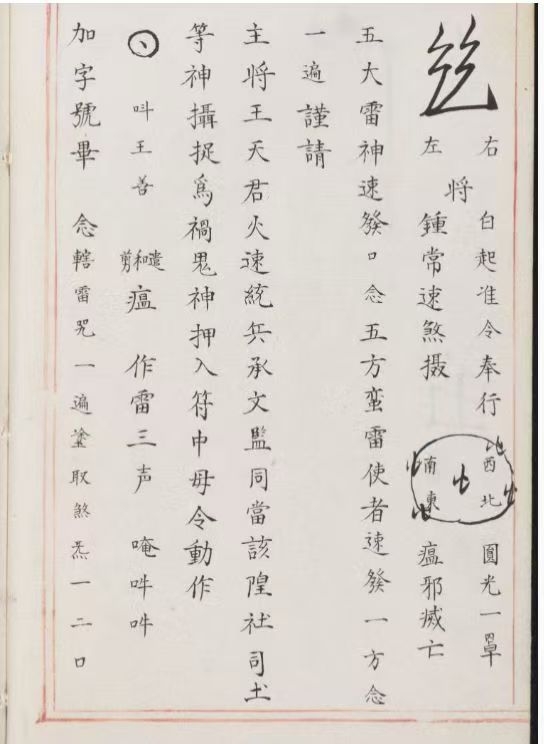 右 白起准令奉行 圓光一罩
将
左 鍾常速煞摄 瘟邪滅亡
西北
南東
五大雷神速發口念五方蛮雷使者速發一方念
一遍謹請
主將王天君火速統兵承文監同當該隍社司土
等神攝捉爲禍鬼神押入符中毋令動作
叫王善 遣和剪瘟 作雷三声 唵吽吽
加字號畢 念轄雷咒一遍塗取煞炁一二口